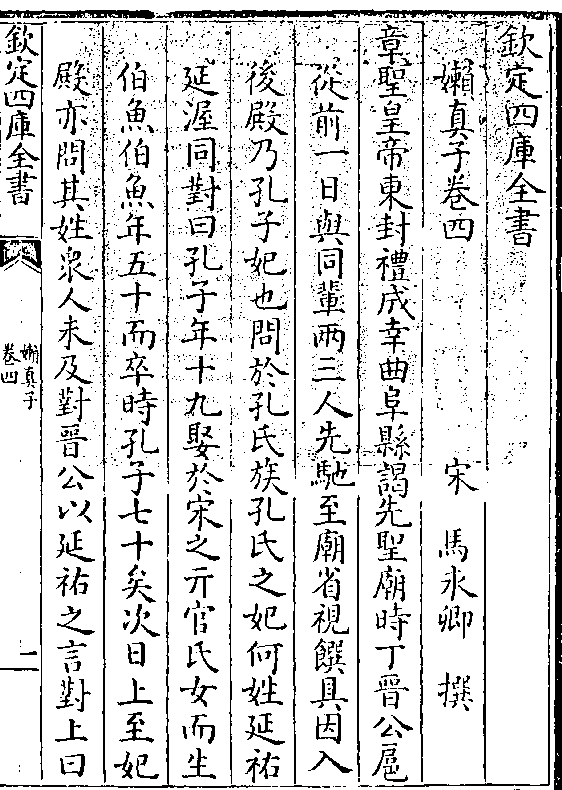 欽定四庫全書
嬾真子卷四
宋 馬永卿 撰
章聖皇帝東封禮成幸曲阜縣謁先聖廟時丁晉公扈
從前一日與同輩兩三人先馳至廟省視饌具因入
後殿乃孔子妃也問於孔氏族孔氏之妃何姓延祐
延渥同對曰孔子年十九娶於宋之亓官氏女而生
伯魚伯魚年五十而卒時孔子七十矣次日上至妃
殿亦問其姓衆人未及對晉公以延祐之言對上曰
欽定四庫全書
嬾真子
卷四
一